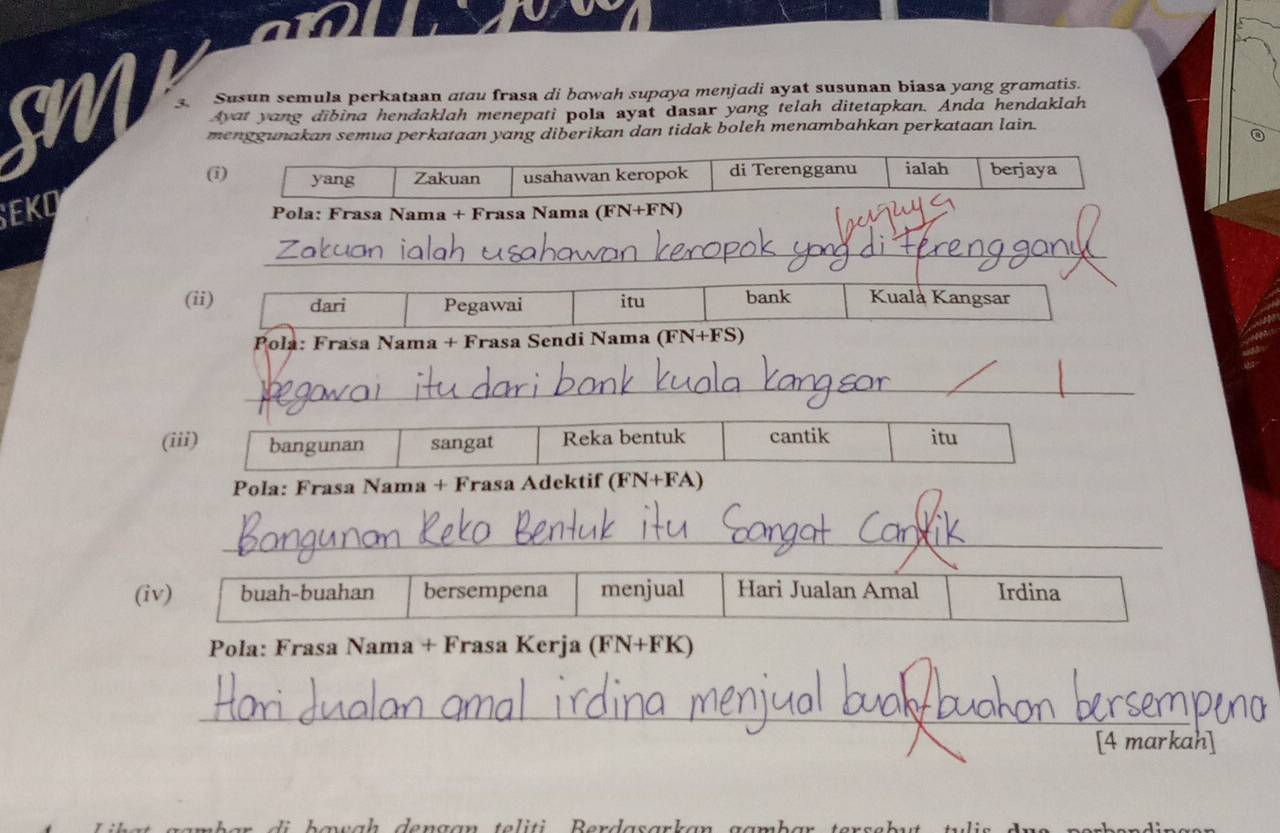 SMK
SEKO
3. Susun semula perkataan atau frasa di bawah supaya menjadi ayat susunan biasa yang gramatis.
Ayat yang dibina hendaklah menepati pola ayat dasar yang telah ditetapkan. Anda hendaklah
menggunakan semua perkataan yang diberikan dan tidak boleh menambahkan perkataan lain.
(i) yang Zakuan usahawan keropok di Terengganu ialah berjaya
Pola: Frasa Nama + Frasa Nama (FN+FN)
berjaya
Zakuan ialah usahawan keropok yang di terengganu
(ii) dari Pegawai itu bank Kuala Kangsar
Pola: Frasa Nama + Frasa Sendi Nama (FN+FS)
pegawai itu dari bank kuala kangsar / 1
(iii) bangunan sangat Reka bentuk cantik itu
Pola: Frasa Nama + Frasa Adektif (FN+FA)
Bangunan Reka Bentuk itu Sangat Cantik
(iv) buah-buahan bersempena menjual Hari Jualan Amal Irdina
Pola: Frasa Nama + Frasa Kerja (FN+FK)
Hari Jualan amal irdina menjual buah-buahan bersempena
[4 markah]
Lihat gambar di bawah dengan teliti. Berdasarkan gambar tersebut, tulis dua